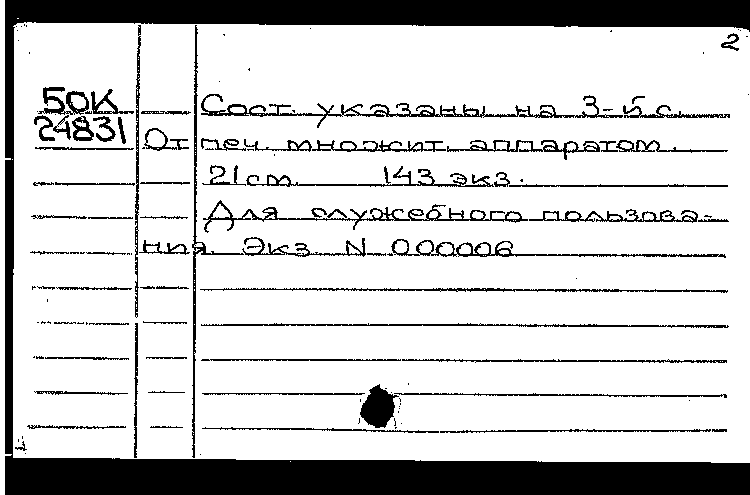 2
50К
24831
Сост. указаны на 3-й с.
Отпеч. множит. аппаратом.
21 см. 143 экз.
Для служебного пользова-
ния. Экз N 000006